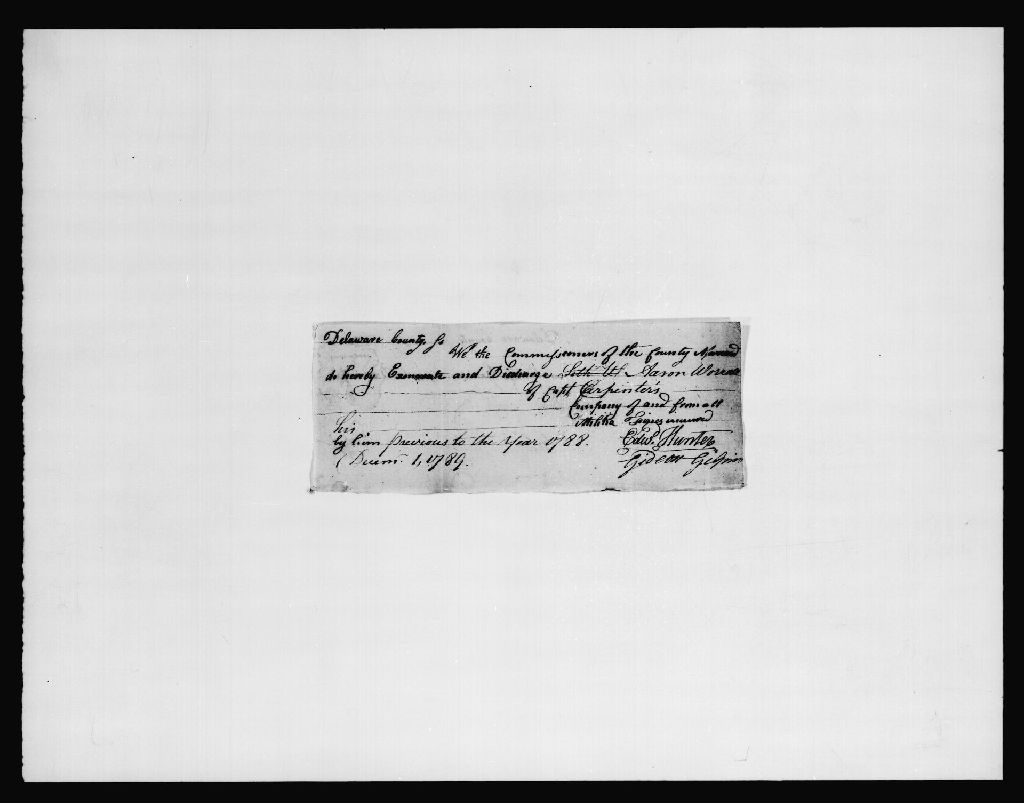 Delaware County Ss
We the Commissioners of the County Aforesaid
do hereby Exonerate and Discharge Aaron Worrall
of Capt Carpenter's
Company of and from all
his Militia Fines incurred
by him previous to the Year 1788.
Edwd. Hunter
Decemr. 1, 1789. Gideon Gilpin